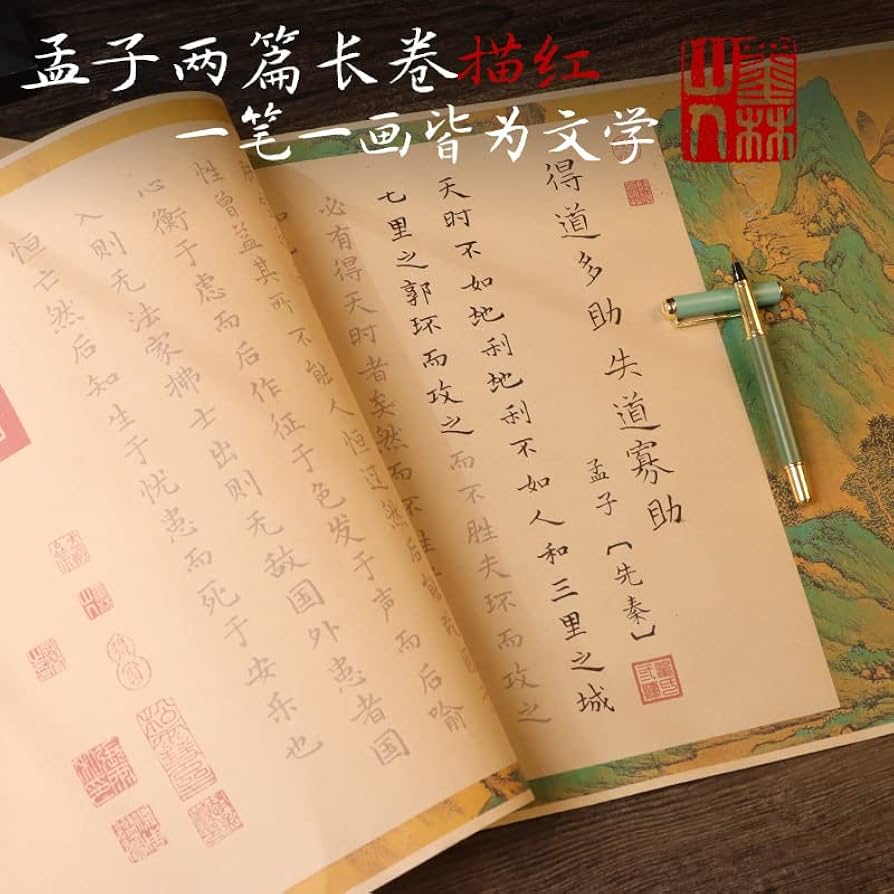 孟子两篇长卷描红
一笔一画皆为文学
山人
得道多助 失道寡助
孟子〔先秦〕
天时不如地利地利不如人和三里之城
七里之郭环而攻之而不胜夫环而攻之
必有得天时者矣然而不胜
性曾益其所不能人恒过然
心衡于虑而后作征于色发于声而后喻
入则无法家拂士出则无敌国外患者国
恒亡然后知生于忧患而死于安乐也